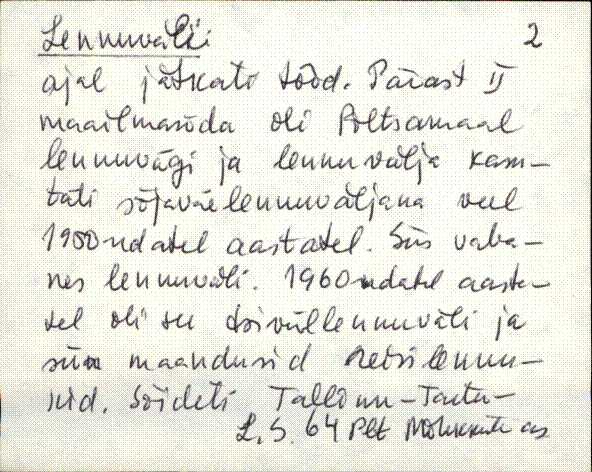 Lennuväli 2
ajal jätkati tööd. Pärast II
maailmasõda oli Põltsamaal
lennuvägi ja lennuvälja kasu-
tati sõjaväelennuväljana veel
1950ndatel aastatel. Siis vaba-
nes lennuväli. 1960ndatel aasta-
tel oli see tsiviillennuväli ja
siin maandusid reisilennu-
kid. Sõideti Tallinn-Tartu-
L. S. 64 Plt